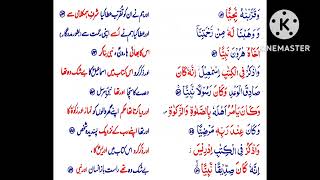 وَقَرَّبْنٰهُ نَجِيًّا
اور ہم نے ان کو تقرب عطا کیا شرف ہمکلامی سے
وَوَهَبْنَا لَهٗ مِنْ رَّحْمَتِنَاۤ
اور ہم نے عطا کیا انہیں اپنی رحمت سے
اَخَاهُ هٰرُوْنَ نَبِيًّا
اس کا بھائی ہارون، نبی بنا کر
وَاذْكُرْ فِي الْكِتٰبِ اِسْمٰعِيْلَ اِنَّهٗ كَانَ
اور ذکر کرو اس کتاب میں اسماعیل کا بے شک وہ تھا
صَادِقَ الْوَعْدِ وَكَانَ رَسُوْلًا نَّبِيًّا
وعدے کا سچا اور تھا
وَكَانَ يَاْمُرُ اَهْلَهٗ بِالصَّلٰوةِ وَالزَّكٰوةِ
اور دیا کرتا تھا حکم اپنے گھر والوں کو نماز اور زکوٰۃ کا
وَكَانَ عِنْدَ رَبِّهٖ مَرْضِيًّا
اور تھا اپنے رب کے نزدیک پسندیدہ شخص
وَاذْكُرْ فِي الْكِتٰبِ اِدْرِيْسَ
اور ذکر کرو اس کتاب میں ادریس کا
اِنَّهٗ كَانَ صِدِّيْقًا نَّبِيًّا
بے شک وہ تھے راست باز انسان اور نبی
KINEMASTER